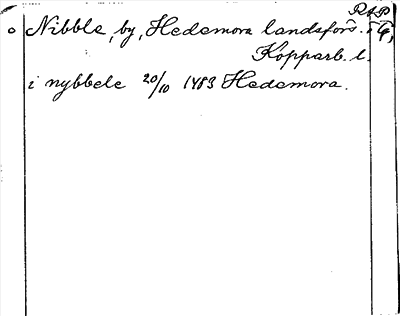 RAP
Nibble, by, Hedemora landsförs.
Kopparb. l.
i nybbele 20/10 1483 Hedemora.